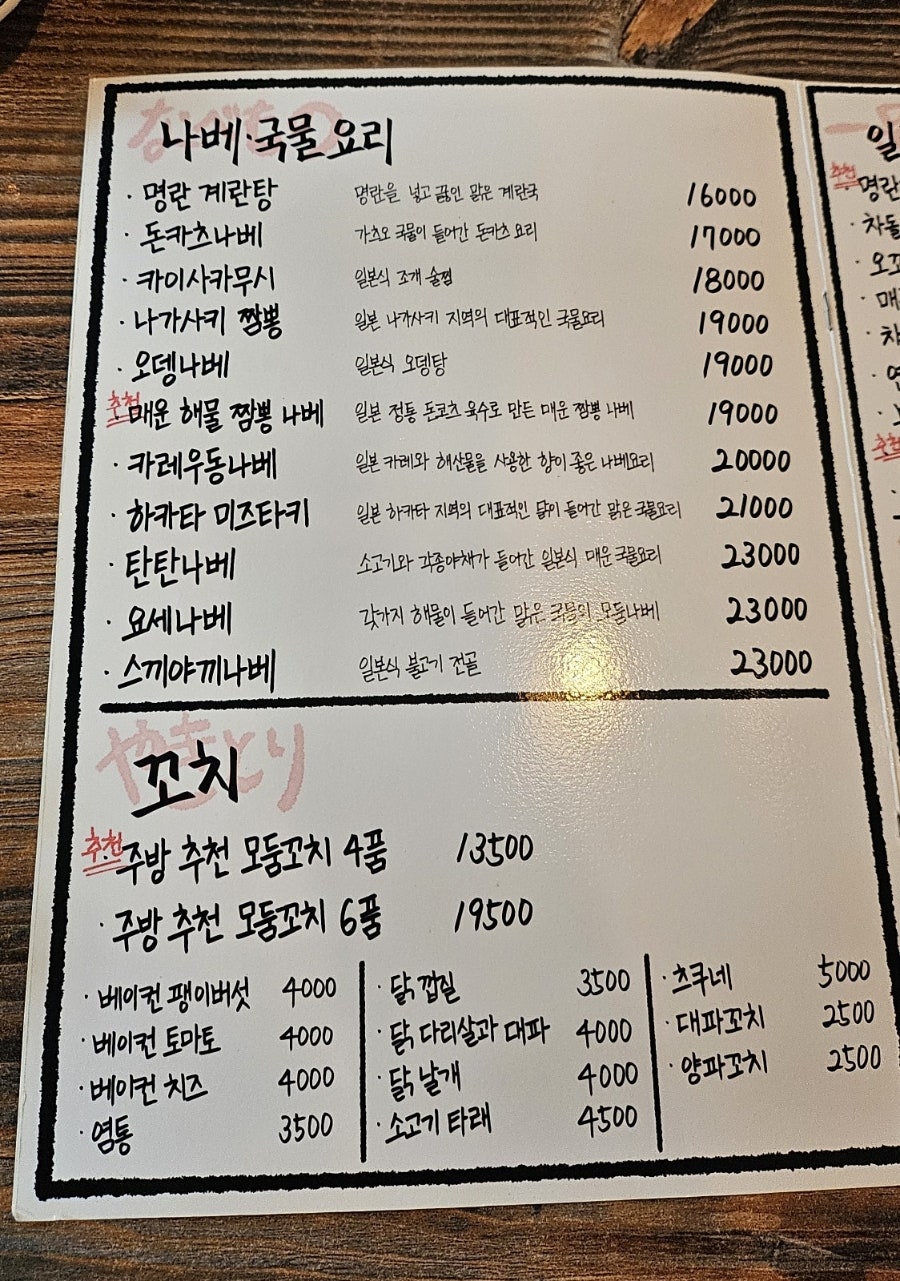 なべもの
나베·국물 요리
· 명란 계란탕 명란을 넣고 끓인 맑은 계란국 16000
· 돈카츠나베 가츠오 국물이 들어간 돈카츠 요리 17000
· 카이사카무시 일본식 조개 술찜 18000
· 나가사키 짬뽕 일본 나가사키 지역의 대표적인 국물요리 19000
· 오뎅나베 일본식 오뎅탕 19000
추천
· 매운 해물 짬뽕 나베 일본 정통 돈코츠 육수로 만든 매운 짬뽕 나베 19000
· 카레우동나베 일본 카레와 해산물을 사용한 향이 좋은 나베요리 20000
· 하카타 미즈타키 일본 하카타 지역의 대표적인 닭이 들어간 맑은 국물요리 21000
· 탄탄나베 소고기와 각종야채가 들어간 일본식 매운 국물요리 23000
· 요세나베 갖가지 해물이 들어간 맑은 국물의 모둠나베 23000
· 스끼야끼나베 일본식 불고기 전골 23000
やきとり
꼬치
추천
· 주방 추천 모둠꼬치 4품 13500
· 주방 추천 모둠꼬치 6품 19500
· 베이컨 팽이버섯 4000
· 베이컨 토마토 4000
· 베이컨 치즈 4000
· 염통 3500
· 닭 껍질 3500
· 닭 다리살과 대파 4000
· 닭 날개 4000
· 소고기 타래 4500
· 츠쿠네 5000
· 대파꼬치 2500
· 양파꼬치 2500
일
추천
명란
· 차돌
· 오꼬
· 매
추천